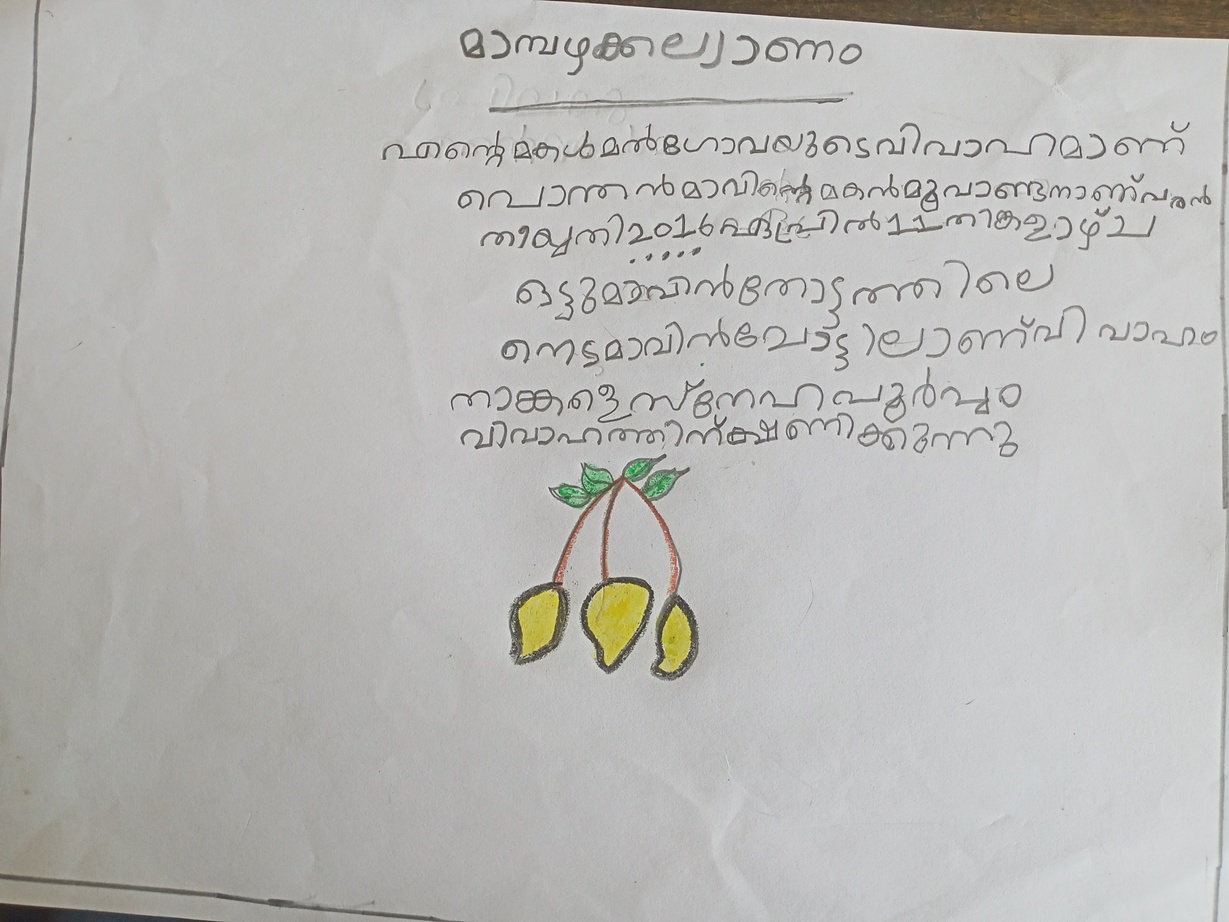 മാമ്പഴക്കല്യാണം
എന്റെ മകൾ മൽഗോവയുടെ വിവാഹമാണ്
പൊന്തൻ മാവിന്റെ മകൻ മൂവാണ്ടനാണ് വരൻ
തിയ്യതി 2016 ഏപ്രിൽ 11 തികളാഴ്ച
ഒട്ടുമാവിൻ തോട്ടത്തിലെ
നെട്ടമാവിൻ ചോട്ടിലാണ് വിവാഹം
താങ്കളെ സ്നേഹപൂർവ്വം
വിവാഹത്തിന് ക്ഷണിക്കുന്നു